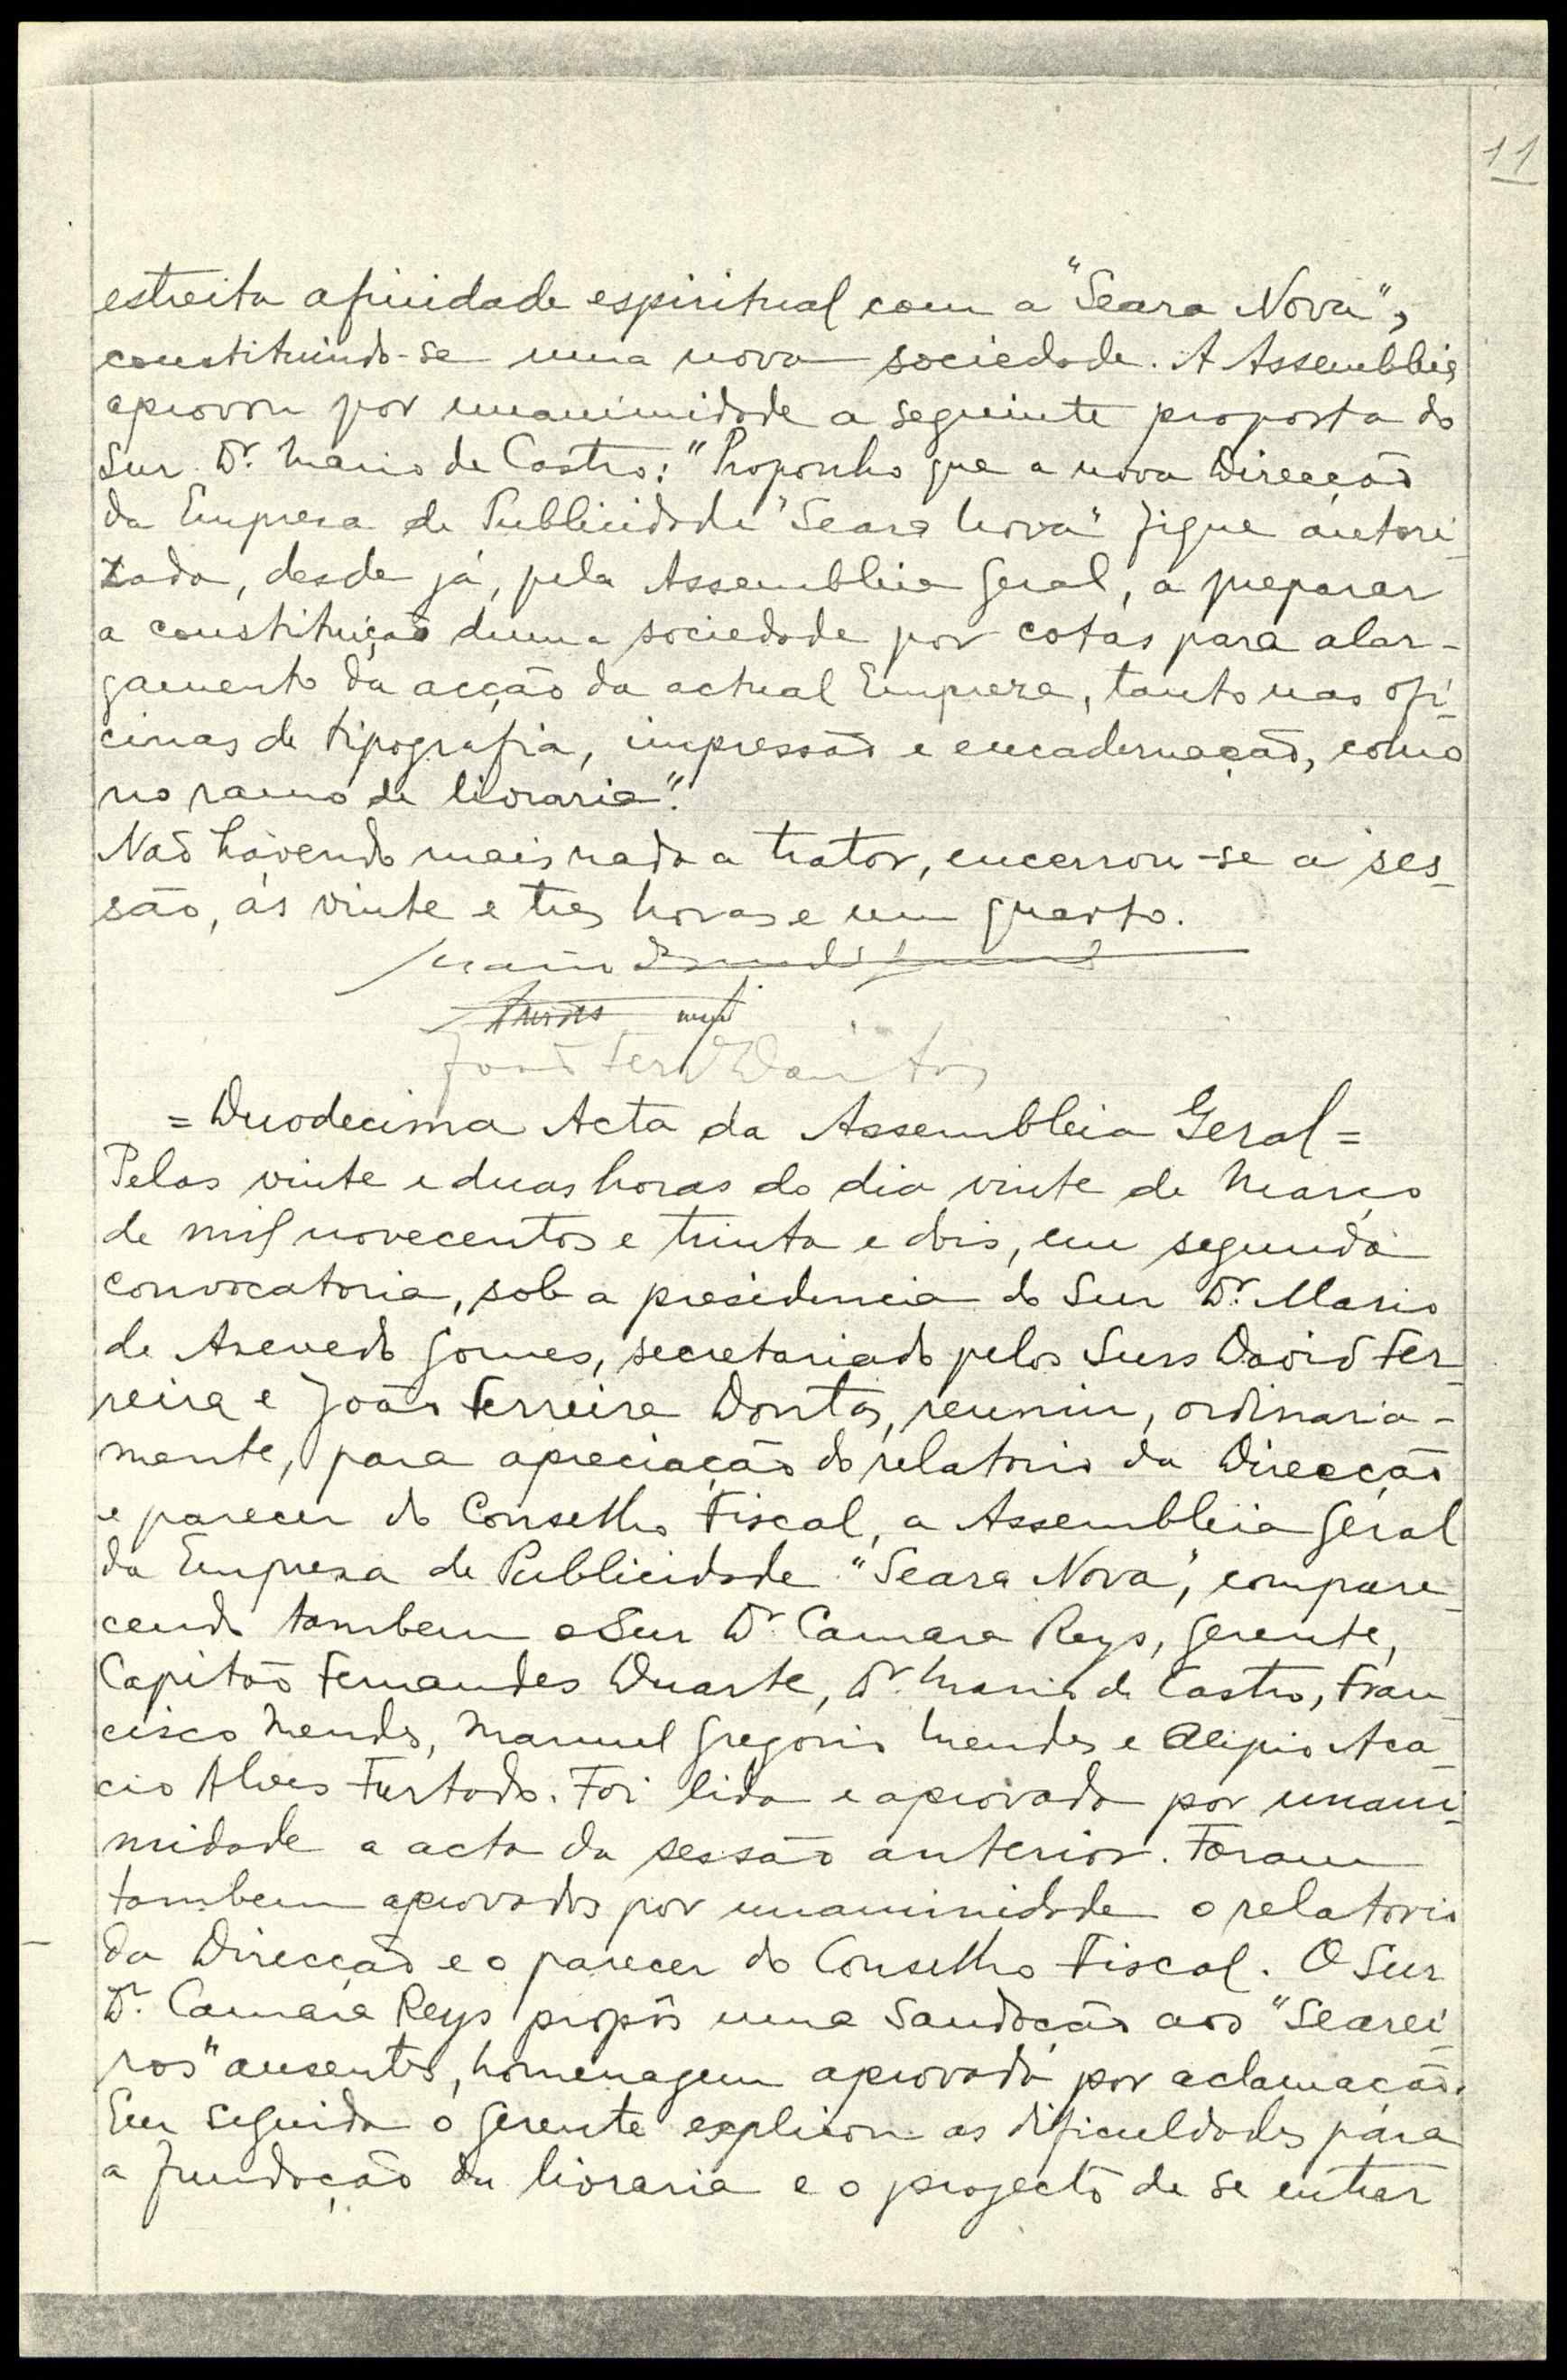 11
estreita afinidade espiritual com a "Seara Nova",
constituindo-se uma nova sociedade. A Assembleia
aprovou por unanimidade a seguinte proposta do
Snr. Dr. Mario de Castro: "Proponho que a nova Direcção
da Empresa de Publicidade "Seara Nova" fique autori-
zada, desde já, pela Assembleia Geral, a preparar
a constituição duma sociedade por cotas para alar-
gamento da acção da actual Empresa, tanto nas ofi-
cinas de tipografia, impressão e encadernação, como
no ramo de livraria".
Não havendo mais nada a tratar, encerrou-se a ses-
são, ás vinte e tres horas e um quarto.
João Ferr Dantas
= Duodecima Acta da Assembleia Geral =
Pelas vinte e duas horas do dia vinte de Março
de mil novecentos e trinta e dois, em segunda
convocatoria, sob a presidencia do Snr Dr. Mario
de Azevedo Gomes, secretariado pelos Snrs David Fer-
reira e João Ferreira Dantas, reuniu, ordinaria-
mente, para apreciação do relatorio da Direcção
e parecer do Conselho Fiscal, a Assembleia Geral
da Empresa de Publicidade "Seara Nova", compare-
cendo tambem o Snr Dr. Camara Reys, gerente,
Capitão Fernandes Duarte, Dr. Mario de Castro, Fran-
cisco Mendes, Manuel Gregorio Mendes e Alipio Aca-
cio Alves Furtado. Foi lida e aprovada por unani-
midade a acta da sessão anterior. Foram
tambem aprovados por unanimidade o relatorio
da Direcção e o parecer do Conselho Fiscal. O Snr
Dr. Camara Reys propôs uma saudação aos "Searei-
ros" ausentes, homenagem aprovada por aclamação.
Em seguida o gerente explicou as dificuldades para
a fundação da livraria e o projecto de se entrar